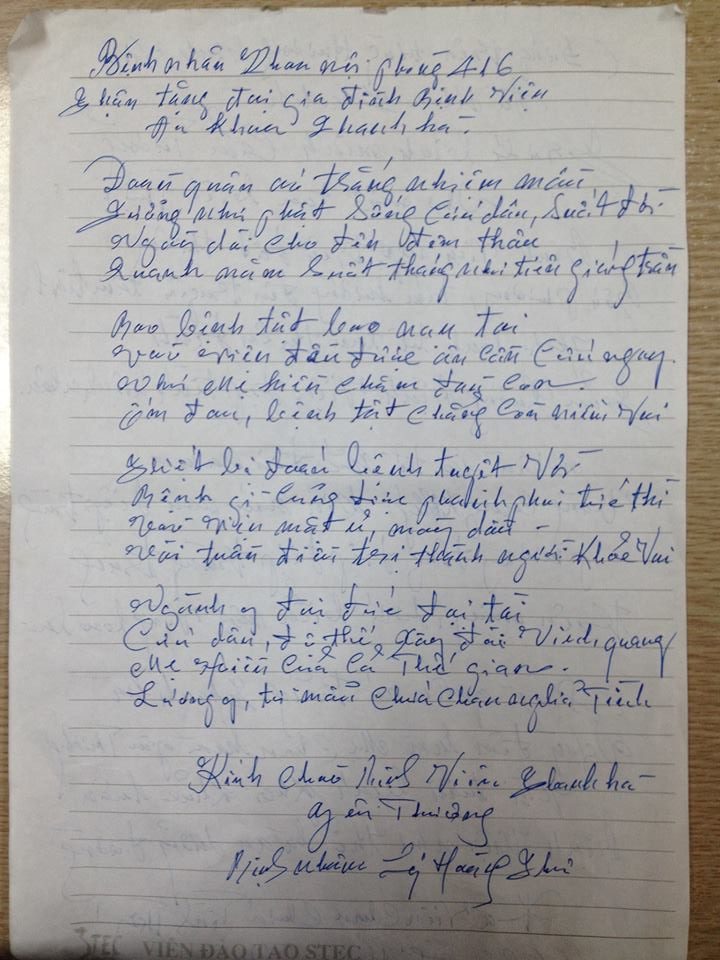 Bệnh nhân Khoa nội phòng 416
Thân tặng đại gia đình Bệnh Viện
Đa Khoa Thanh hà.
Đoàn quân áo trắng nhiệm màu
Tưởng như phật sống Cứu dân, Suốt đời
Ngày dài cho đến đêm thâu
Quanh năm Suốt tháng như tiên giáng trần
Bao bệnh tật bao nan tai
Vào viện đều được ân cần Cứu ngay.
Như Mẹ hiền chăm đàn con.
ốm đau, bệnh tật chẳng Còn niềm vui
Thiết bị đoán bệnh tuyệt vời
Bệnh gì cũng được phanh phui tức thì
Vào viện mặt ủ, mày dầu
Vài tuần điều trị thành người khỏe vui
Ngành y đại đức đại tài
Cứu dân, độ thế, xây đài Vinh quang
Mẹ hiền Của cả Thế gian.
Lương y, từ mẫu chứa chan nghĩa Tình
Kính chào Bệnh Viện Thanh hà
Yên Thường
Bệnh nhân Lý Hoàng
STEC VIỆN ĐÀO TẠO STEC